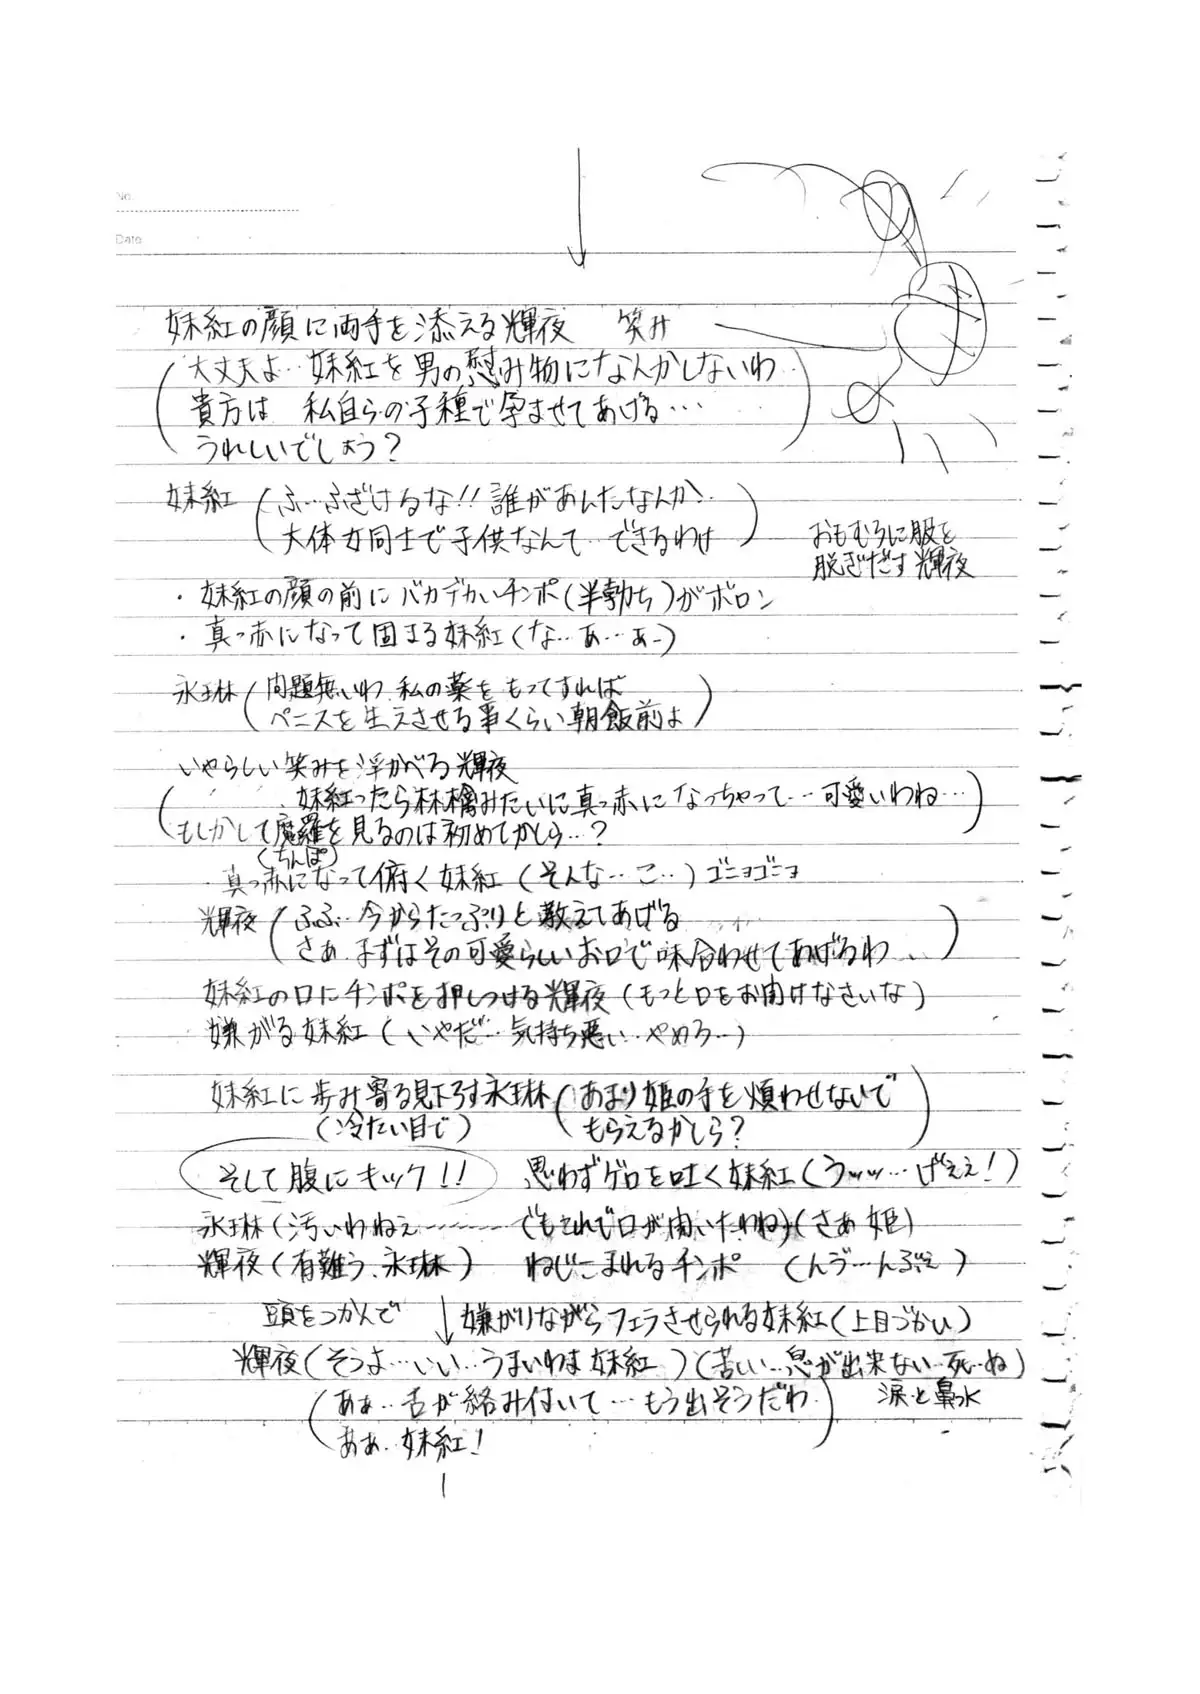 No.
Date
妹紅の顔に両手を添える輝夜 笑み
(大丈夫よ… 妹紅を男の慰み物になんかしないわ
貴方は 私自らの子種で孕ませてあげる…
うれしいでしょう?)
妹紅(ふ…ふざけるな!! 誰があんたなんか…
大体女同士で子供なんて…できるわけ)
おもむろに服を
脱ぎだす輝夜
・妹紅の顔の前にバカデカいチンポ(半勃ち)がボロン
・真っ赤になって固まる妹紅(な…あ…あ-)
永琳(問題無いわ 私の薬をもってすれば
ペニスを生えさせる事くらい朝飯前よ)
いやらしい笑みを浮かべる輝夜
(妹紅ったら林檎みたいに真っ赤になっちゃって…可愛いわね…
もしかして魔羅を見るのは初めてかしら…?)
(ちんぽ)
・真っ赤になって俯く妹紅(そんな…こ…)ゴニョゴニョ
輝夜(ふふ…今からたっぷりと教えてあげる
さあ まずはその可愛らしいお口で味合わせてあげるわ…)
妹紅の口にチンポを押しつける輝夜(もっと口をお開けなさいな)
嫌がる妹紅(いやだ…気持ち悪い…やめろ…)
妹紅に歩み寄る見下ろす永琳(あまり姫の手を煩わせないで
(冷たい目で) もらえるかしら?)
そして腹にキック!! 思わずゲロを吐く妹紅(うッッ…げえぇ!)
永琳(汚いわねぇ……でもこれで口が開いたわね)(さあ姫)
輝夜(有難う、永琳) ねじこまれるチンポ (んう…んぶえ)
頭をつかんで ↓嫌がりながらフェラさせられる妹紅(上目づかい)
輝夜(そうよ…いい…うまいわよ妹紅)(苦しい…息が出来ない…死…ぬ)
(あぁ…舌が絡み付いて…もう出そうだわ 涙と鼻水
ああ…妹紅!)